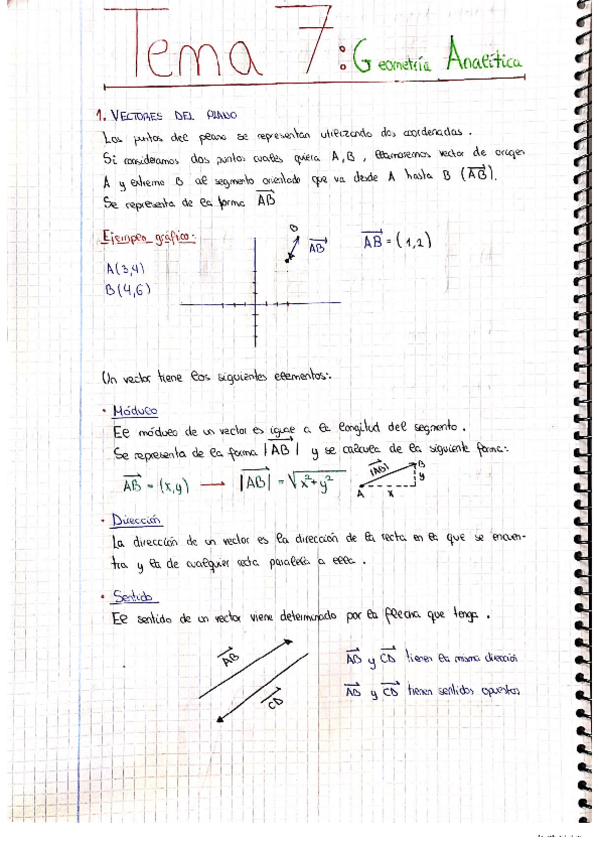 Tema 7: Geometría Analítica
1. VECTORES DEL PLANO
Los puntos del plano se representan utilizando dos coordenadas.
Si consideramos dos puntos cuales quiera A, B, llamaremos vector de origen
A y extremo B al segmento orientado que va desde A hasta B (AB).
Se representa de la forma AB
Ejemplo gráfico:
A(3,4)
B(4,6)
B
A
AB
AB = (1,2)
Un vector tiene los siguientes elementos:
· Módulo
El módulo de un vector es igual a la longitud del segmento.
Se representa de la forma |AB| y se calcula de la siguiente forma:
AB = (x,y) → |AB| = √x²+y²
|AB|
A
B
x
y
· Dirección
La dirección de un vector es la dirección de la recta en la que se encuen-
tra y la de cualquier recta paralela a ella.
· Sentido
El sentido de un vector viene determinado por la flecha que tenga.
AB
CD
AB y CD tienen la misma dirección
AB y CD tienen sentidos opuestos